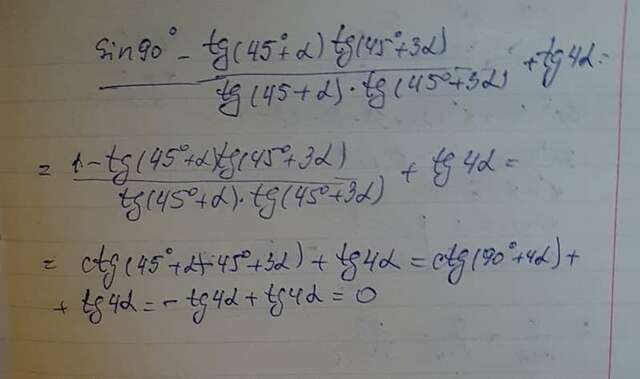 sin90° - tg(45°+α) tg(45°+3α)
tg(45+α)·tg(45°+3α) + tg4α =
= 1-tg(45°+α)tg(45°+3α)
tg(45°+α)·tg(45°+3α) + tg4α =
= ctg(45°+α+45°+3α) + tg4α = ctg(90°+4α) +
+ tg4α = -tg4α + tg4α = 0